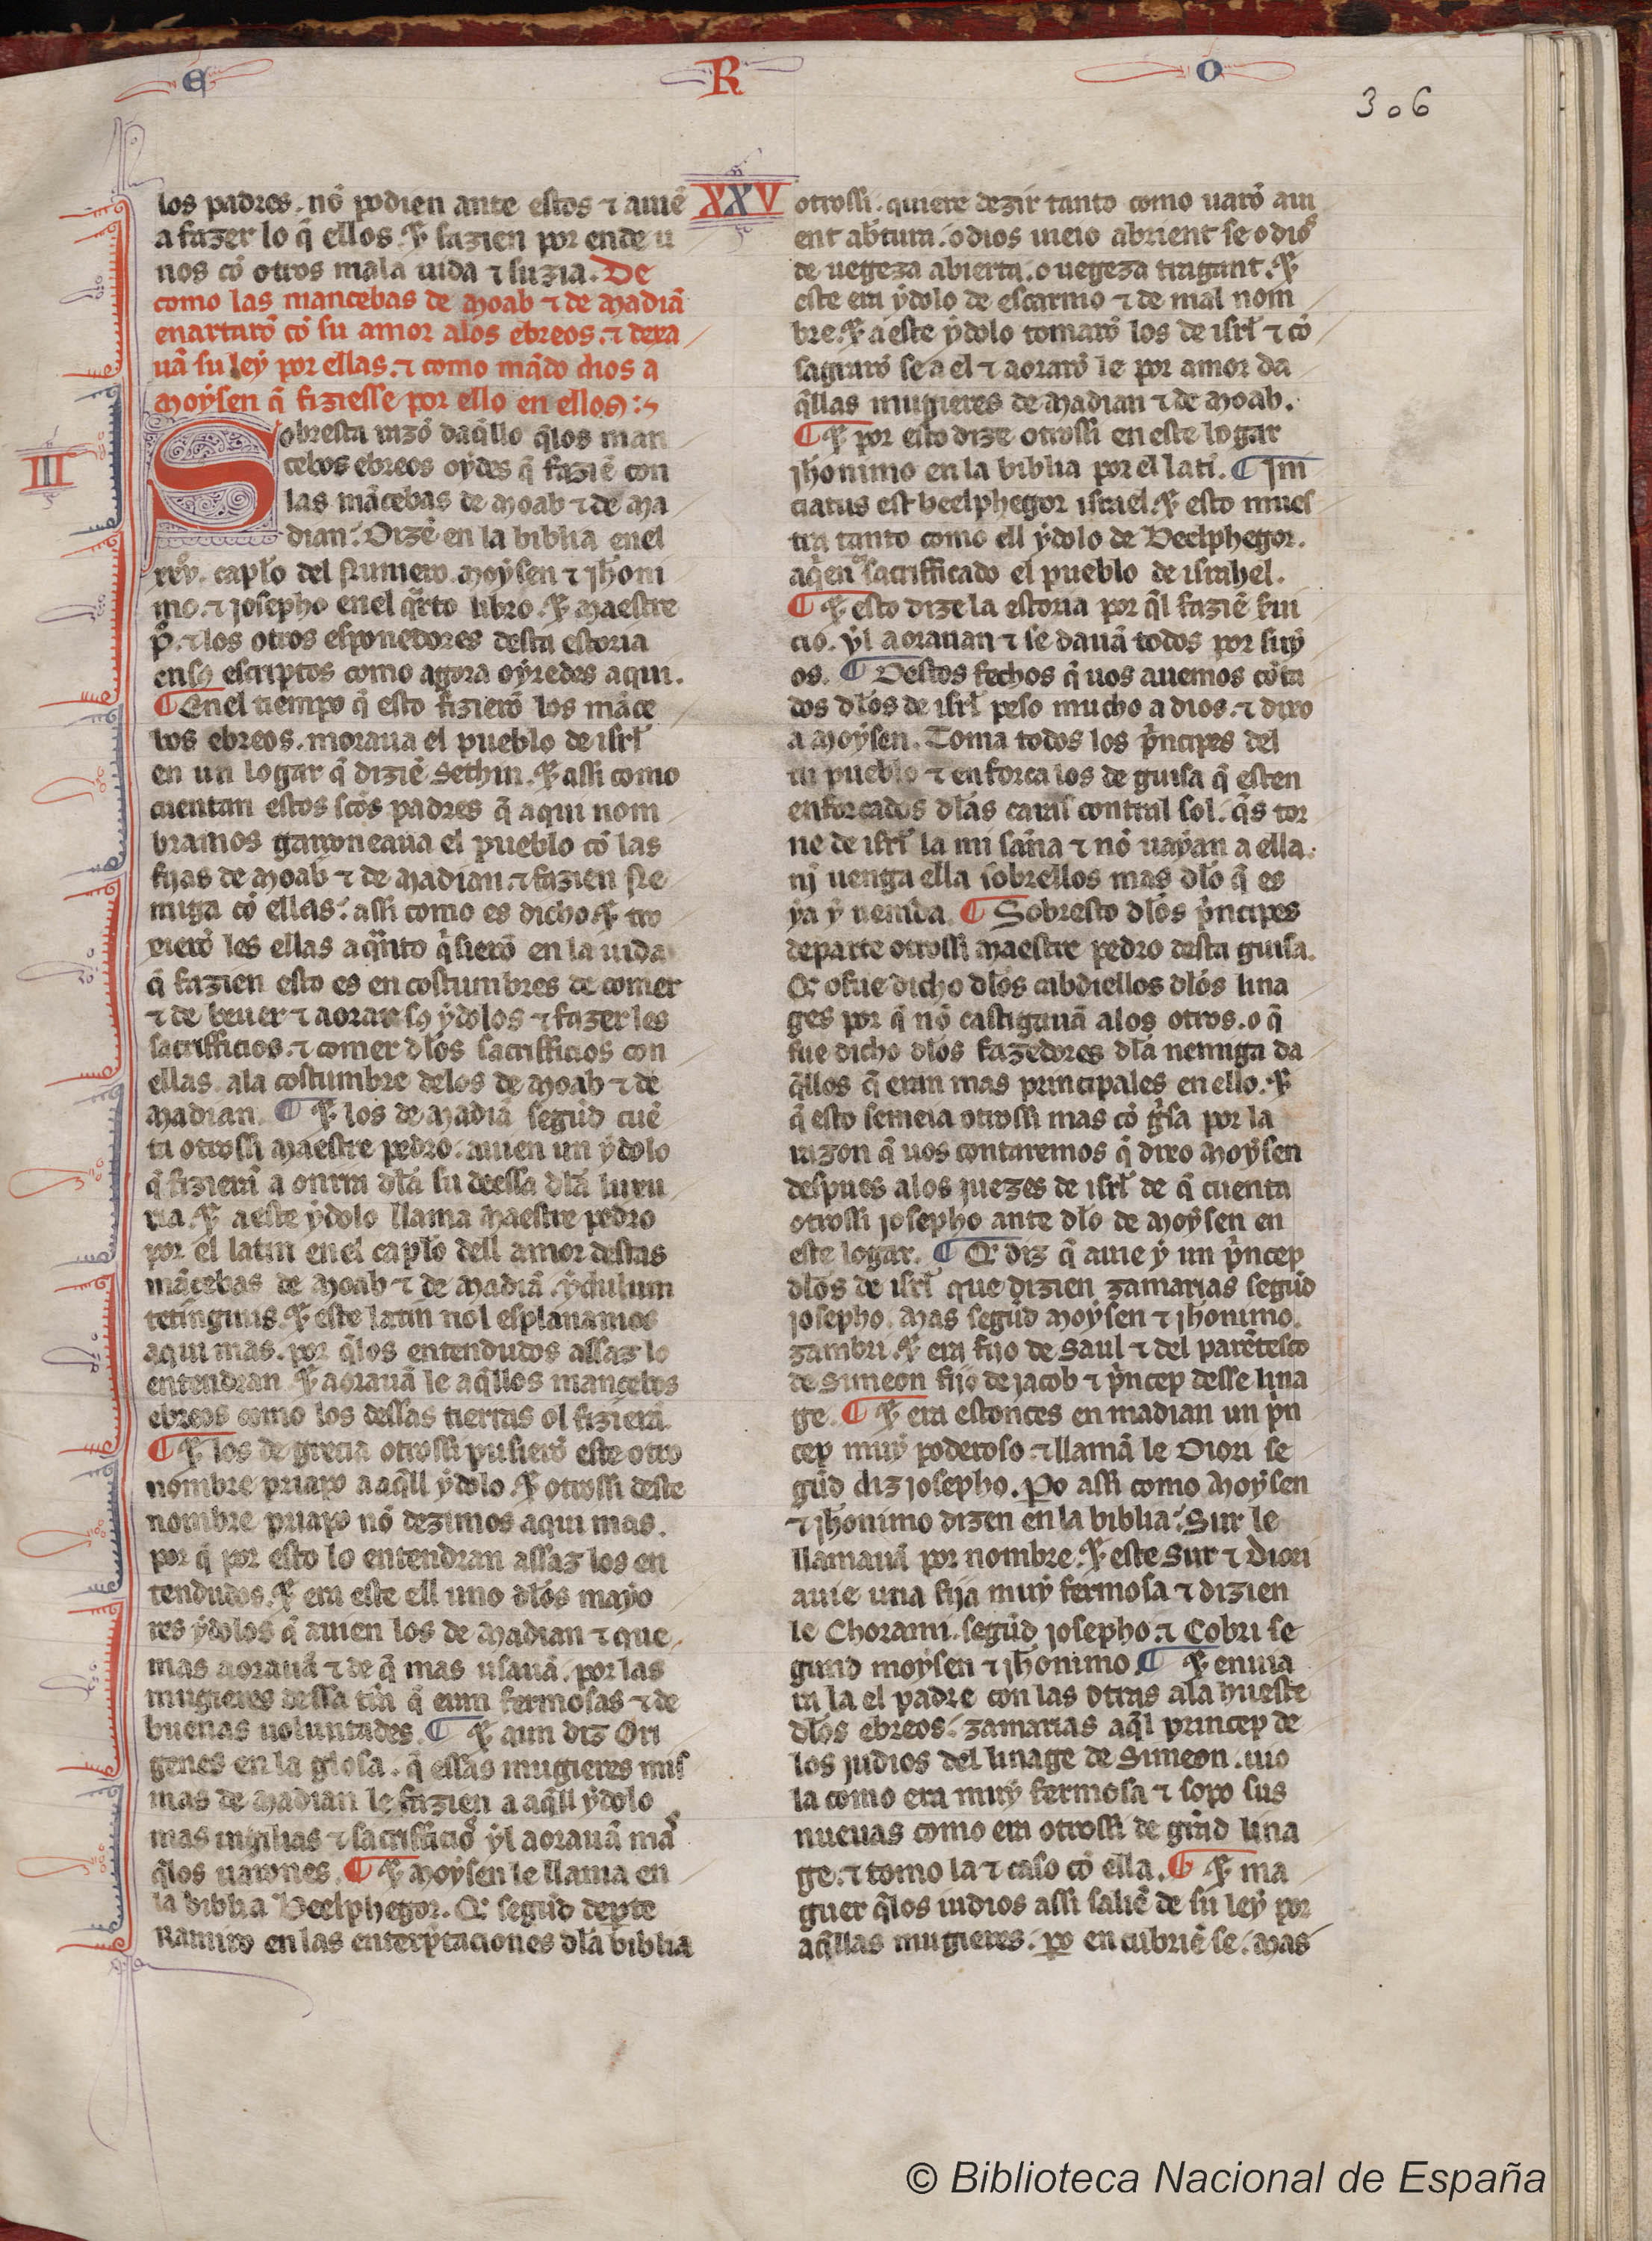 E R O
306
XXV
los padres. nõ podien ante estos ⁊ auiẽ
a fazer lo q̃ ellos. ⁊ fazien por ende u
nos cõ otros mala uida ⁊ suzia. De
como las mancebas de Moab ⁊ de Madiã
enartarõ cõ su amor alos ebreos. ⁊ dexa
uã su ley por ellas. ⁊ como mãdo dios a
Moysen q̃ fiziesse por ello en ellos:
III
Sobresta razõ daq̃llo q̃los man
cebos ebreos oydes q̃ faziẽ con
las mãcebas de Moab ⁊ de Ma
dian. Dizẽ en la biblia enel
xxv. capł̃o del Numero. Moysen ⁊ jhoni
mo. ⁊ josepho enel q̃rto libro. ⁊ Maestre
p̃o. ⁊ los otros esponedores desta estoria
en sꝯ escriptos como agora oyredes aqui.
¶ Enel tiempo q̃ esto fizierõ los mãce
bos ebreos. moraua el pueblo de isrł
en un logar q̃ diziẽ Sethin. ⁊ assi como
cuentan estos scõs padres q̃ aqui nom
bramos garçoneaua el pueblo cõ las
fijas de Moab ⁊ de Madian. ⁊ fazien ne
miga cõ ellas. assi como es dicho. ⁊ tro
xierõ les ellas a quãto q̃sierõ en la uida
q̃ fazien esto es en costumbres de comer
⁊ de beuer ⁊ aorar sꝯ ydolos ⁊ fazer les
sacrifficios. ⁊ comer dłos sacrifficios con
ellas ala costumbre delos de Moab ⁊ de
Madian. ¶ ⁊ los de Madiã segũd cuẽ
ta otrossi Maestre pedro. auien un ydolo
q̃ fizierã a onrra dła su deessa dła luxu
ria. ⁊ a este ydolo llama Maestre pedro
por el latin enel capł̃o dell amor destas
mãcebas de Moab ⁊ de Madiã. ydulum
tetinginis. ⁊ este latin nol esplanamos
aqui mas. por q̃los entendudos assaz lo
entendran. ⁊ aorauã le aq̃llos mancebos
ebreos como los dessas tierras ol fizierã.
¶ ⁊ los de grecia otrossi pusierõ este otro
nombre priapo a aq̃ll ydolo. ⁊ otrossi deste
nombre priapo nõ dezimos aqui mas.
por q̃ por esto lo entendran assaz los en
tendudos. ⁊ era este ell uno dłos mayo
res ydolos q̃ auien los de Madian ⁊ que
mas aorauã ⁊ de q̃ mas usauã. por las
mugieres dessa trr̃a q̃ eran fermosas ⁊ de
buenas uoluntades. ¶ ⁊ aun diz Ori
genes en la glosa. q̃ essas mugieres mis
mas de Madian le fazien a aq̃ll ydolo
mas uigilias ⁊ sacrifficios yl aorauã mas
q̃los uarones. ¶ ⁊ Moysen le llama en
la biblia Beelphegor. Or segũd dep̃te
Ramiro en las enterp̃taciones dła biblia
otrossi. quiere dezir tanto como uarõ aui
ent abt̃ura. o dios uieio abrient se o dios
de uegeza abierta. o uegeza tingant. ⁊
este era ydolo de escarnio ⁊ de mal nom
bre. ⁊ a este ydolo tomarõ los de isrł ⁊ cõ
sagrarõ se a el ⁊ aorarõ le por amor da
q̃llas mugieres de Madian ⁊ de Moab.
¶ ⁊ por esto dize otrossi en este logar
jhonimo en la biblia por el latĩ. ¶ Ini
ciatus est beelphegor israel. ⁊ esto mues
tra tanto como ell ydolo de Beelphegor.
aq̃en sacrifficado el pueblo de israhel.
¶ ⁊ esto dize la estoria por q̃l faziẽ fui
cio. yl aorauan ⁊ se dauã todos por suy
os. ¶ Destos fechos q̃ uos auemos cõta
dos dłos de isrł peso mucho a dios. ⁊ dixo
a Moysen. Toma todos los p̃ncipes del
tu pueblo ⁊ enforca los de guisa q̃ esten
enforcados dłas caras contral sol. q̃s tor
ne de isrł la mi saña ⁊ nõ uayan a ella.
nj uenga ella sobrellos mas dło q̃ es
ya y uenida. ¶ Sobresto dłos p̃ncipes
departe otrossi Maestre pedro desta guisa.
Or o fue dicho dłos cabdiellos dłos lina
ges por q̃ nõ castigauã alos otros. o q̃
fue dicho dłos fazedores dła nemiga da
q̃llos q̃ eran mas principales en ello. ⁊
q̃ esto semeia otrossi mas cõ g̃sa por la
razon q̃ uos contaremos q̃ dixo Moysen
despues alos juezes de isrł de q̃ cuenta
otrossi josepho ante dło de Moysen en
este logar. ¶ Or diz q̃ auie y un p̃ncep
dłos de isrł que dizien zamarias segũd
josepho. Mas segũd Moysen ⁊ jhonimo.
zambri. ⁊ era fijo de Saul ⁊ del parẽtesco
de Simeon fijo de jacob ⁊ p̃ncep desse lina
ge. ¶ ⁊ era estonces en madian un p̃n
cep muy poderoso ⁊ llamã le Diori se
gũd diz josepho. Po assi como Moysen
⁊ jhonimo dizen en la biblia. Sur le
llamauã por nombre. ⁊ este Sur ⁊ Diori
auie una fija muy fermosa ⁊ dizien
le Chorami. segũd josepho. ⁊ Cobri se
gund moysen ⁊ jhonimo. ¶ ⁊ enuia
ra la el padre con las otras ala hueste
dłos ebreos. zamarias aq̃l princep de
los judios del linage de Simeon. uio
la como era muy fermosa ⁊ sopo sus
nueuas como era otrossi de grãd lina
ge. ⁊ tomo la ⁊ caso cõ ella. ¶ ⁊ ma
guer q̃los iudios assi saliẽ de su ley por
aq̃llas mugieres. po encubriẽ se. Mas
© Biblioteca Nacional de España